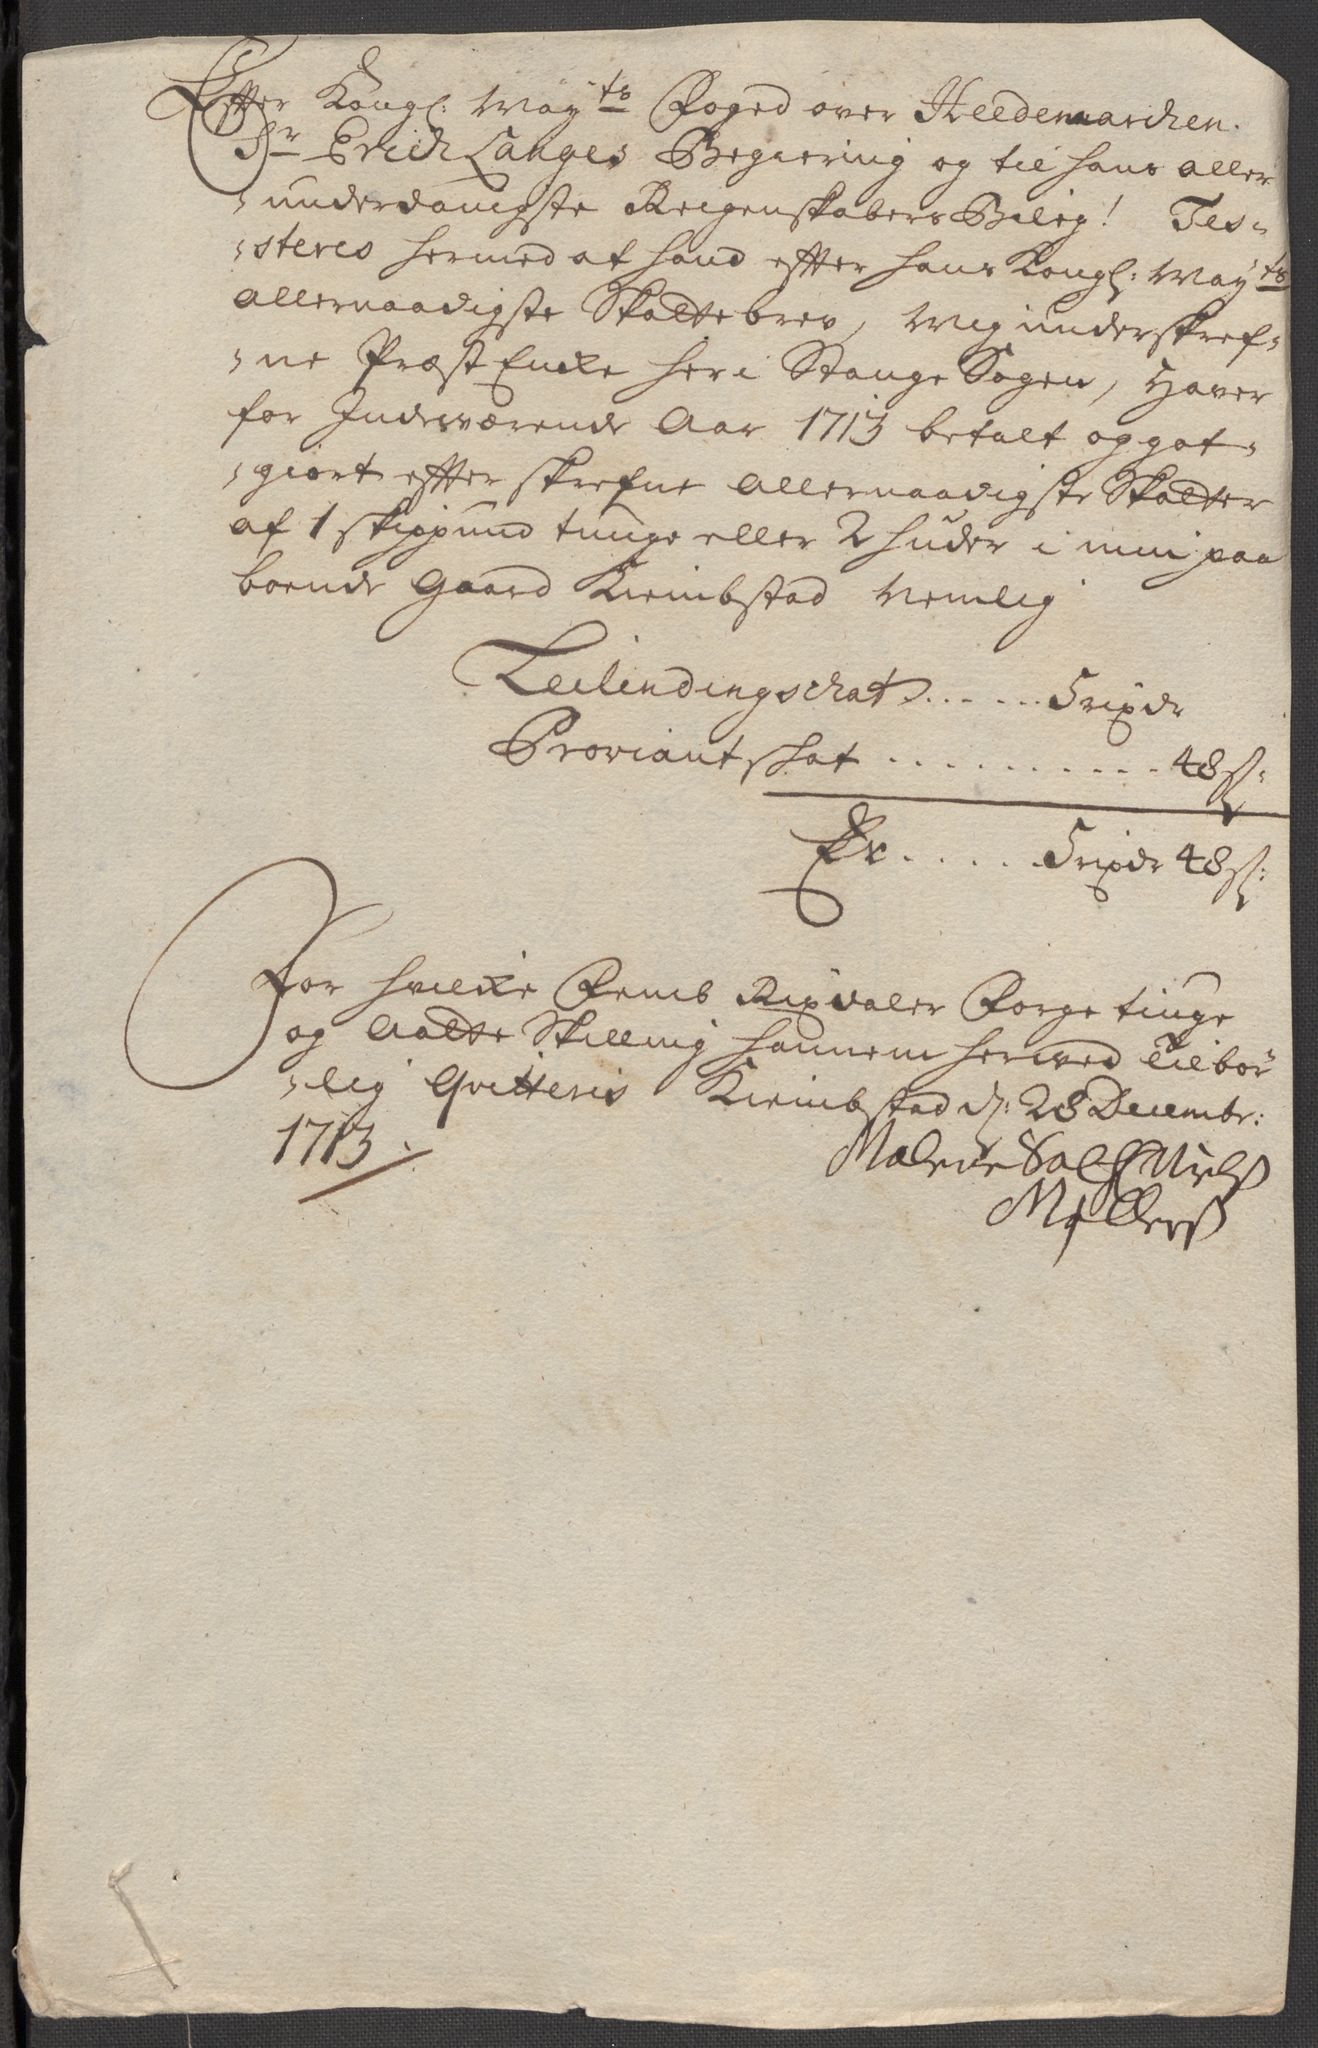 Effter Kongl: May:ts Foged over Heedemarchen.
Sr Erich Langes Begiering og til hans aller
-underdanigste Reigenskabers Bileg! Tes-
-steres hermed at hand effter hans Kongl: May:ts
allernaadigste Skattebrev, Mig underskref-
-ne Præst Encke her i Stange Sogen, Haver
for Indeværende Aar 1713 betalt og got-
-giort effterskrefne allernaadigste Skatter
af 1 skippund tunge eller 2 huder i min paa
boende Gaard Kiembstad Nemlig
Leilendingschat ...... 5 rixdr
Proviantskat .......... 48 s:
Er ..... 5 rixdr 48 s:
For hvilcke Femb Rixdaler Førgetiuge
og Aatte Skilling hannem herved tilbør-
-lig Qvitteris Kiembstad d: 28 Decembr:
1713.
Malene Sal: Niels
Møllers